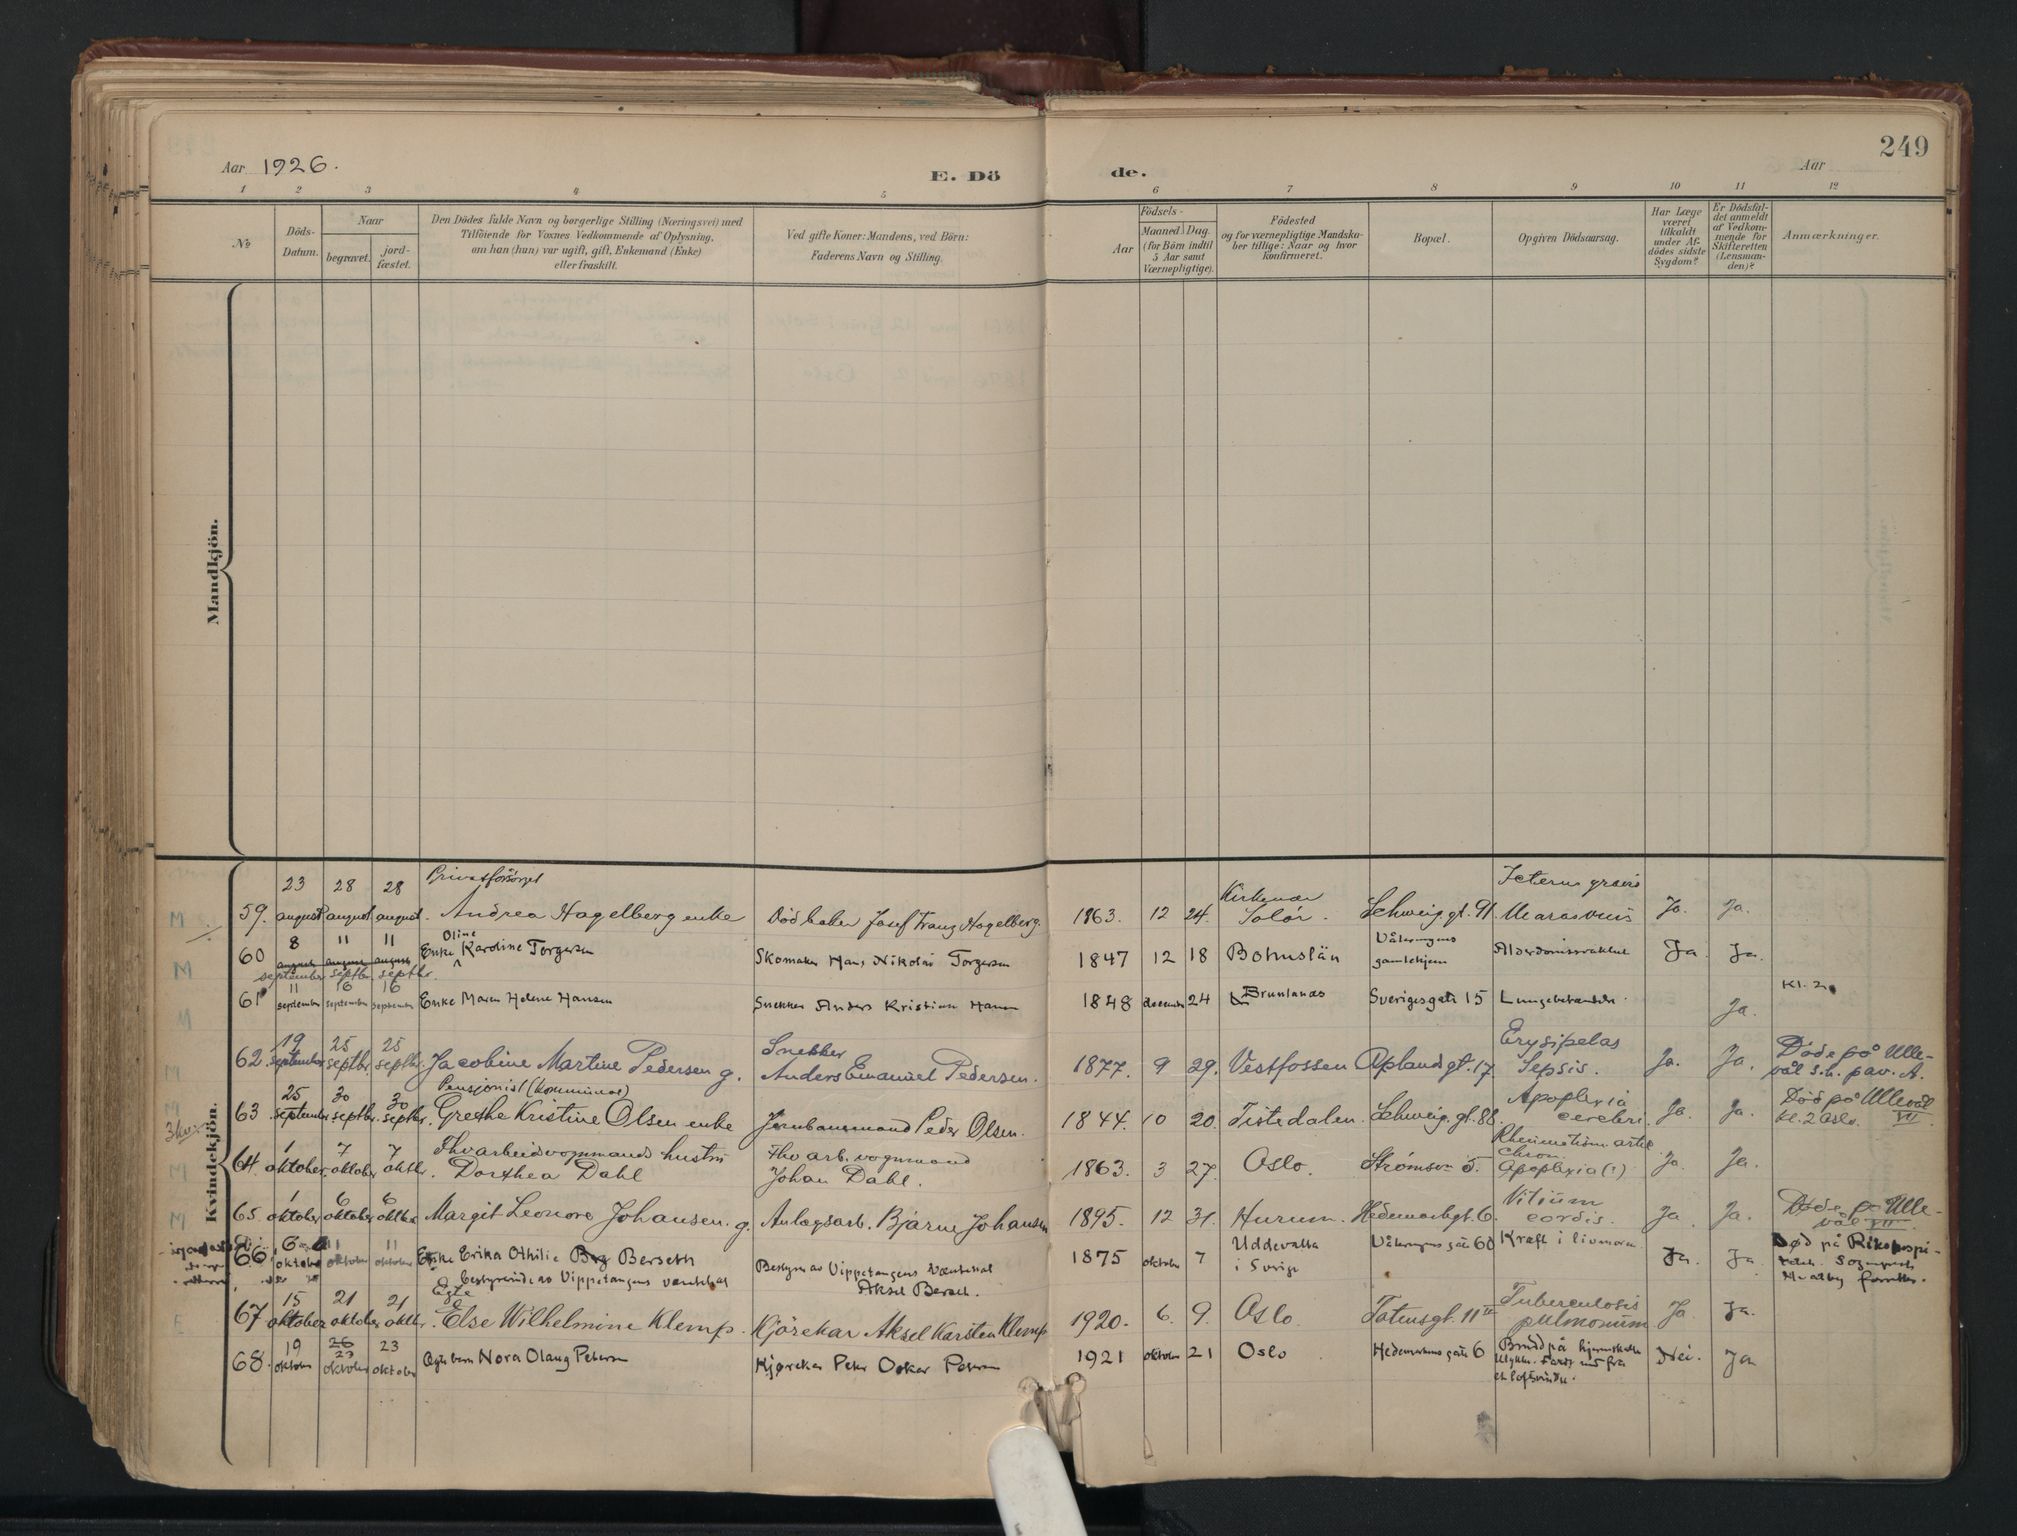 249
Aar 1926.
E. Dö
de.
Aar
1 2 3 4 5 6 7 8 9 10 11 12
No
Döds-
Datum.
Naar
begravet.
jord-
fæstet.
Den Dödes fulde Navn og borgerlige Stilling (Næringsvei) med
Tilföiende for Voxnes Vedkommende af Oplysning,
om han (hun) var ugift, gift, Enkemand (Enke)
eller fraskilt.
Ved gifte Koner: Mandens, ved Börn:
Faderens Navn og Stilling.
Aar
Födsels-
Maaned Dag.
(for Börn indtil
5 Aar samt
Værnepligtige).
Födested
og for værnepligtige Mandska-
ber tillige: Naar og hvor
konfirmeret.
Bopæl.
Opgiven Dödsaarsag.
Har Læge
været
tilkaldt
under Af-
dödes sidste
Sygdom?
Er Dödsfal-
det anmeldt
af Vedkom-
mende for
Skifteretten
(Lensman-
den)?
Anmærkninger.
Mandkjön.
Kvindekjön.
23 28 28 Privatforsörget Kirkenær Icterus gravis
59. august august august. Andrea Hagelberg enke Josef Franz Hagelberg. 1863. 12 24. Solör. Schweig. gt. 91. Marasmus Ja. Ja.
8 11 11 Oline Vålerengens
60 august august august Enke Karoline Torgersen Skomaker Hans Nikolai Torgersen 1847 12 18 Bohuslän gamlehjem Alderdomssvakhet Ja Ja.
september septbr. septbr.
11 16 16 Kl. 2
61 september september september Enke Maren Helene Hansen Snekker Anders Kristian Hansen 1848 december 24 Brunlanæs Sverigesgate 15 Lungebetændelse. Ja.
19 25 25 Snekker Erysipelas Döde på Ulle-
62. september. septbr. septbr. Jacobine Martine Pedersen g. Anders Emanuel Pedersen. 1877. 9 29. Vestfossen Oplandgt. 17 Sepsis. Ja. Ja. vål s.h. pav. A.
25 30 30 Pensjonist (kommunal) Apoplexia Död på Ullevål
63 september. septbr. septbr. Grethe Kristine Olsen enke Jernbanemand Peder Olsen. 1844. 10 20. Tistedalen Schweig. gt. 88. cerebri. Ja. Ja. kl. 2 Oslo. VII
1 7 7 Thv arbeidsvognmands hustru Thv arb. vognmand Rheumatism. artic. chron.
64. oktober. oktober oktbr. Dorthea Dahl Johan Dahl. 1863. 3 27. Oslo. Strömsv. 5. Apoplexia (?) Ja. Ja.
1 6 6 Vitium Döde på Ulle-
65. oktober oktober oktber Margit Leonore Johansen. g. Anlægsarb. Bjarne Johansen 1895. 12 31. Hurum. Hedemarkgt. 6. cordis. Ja Ja. vål VII
6 11 11 Uddevalla Død på Rikshospi-
66 oktober oktober oktober Enke Erika Othilie Berseth Bestyrer av Vippetangens Ventehal 1875 oktober 7 i Sverige Vålerengens gate 60 Kræft i livmoren Ja. Ja
bestyrerinde av Vippetangens ventehal Aksel
15 21 21 Egte Tuberculosis
67 oktober oktober oktbr. Else Wilhelmine Klemp. Kjörekar Aksel Karsten Klemp 1920. 6. 9. Oslo. gt. 11 IV pulmonum. Ja Ja.
19 26 23 23
68. oktober oktober oktober Egte barn Nora Olaug Petersen Kjørekar Peter Oskar Petersen 1921 oktober 21 Oslo Hedemarkens gate 6 Brudd på hjerneskallen Nei. Ja
ulykke. Faldt ned fra
et loftsvindu.